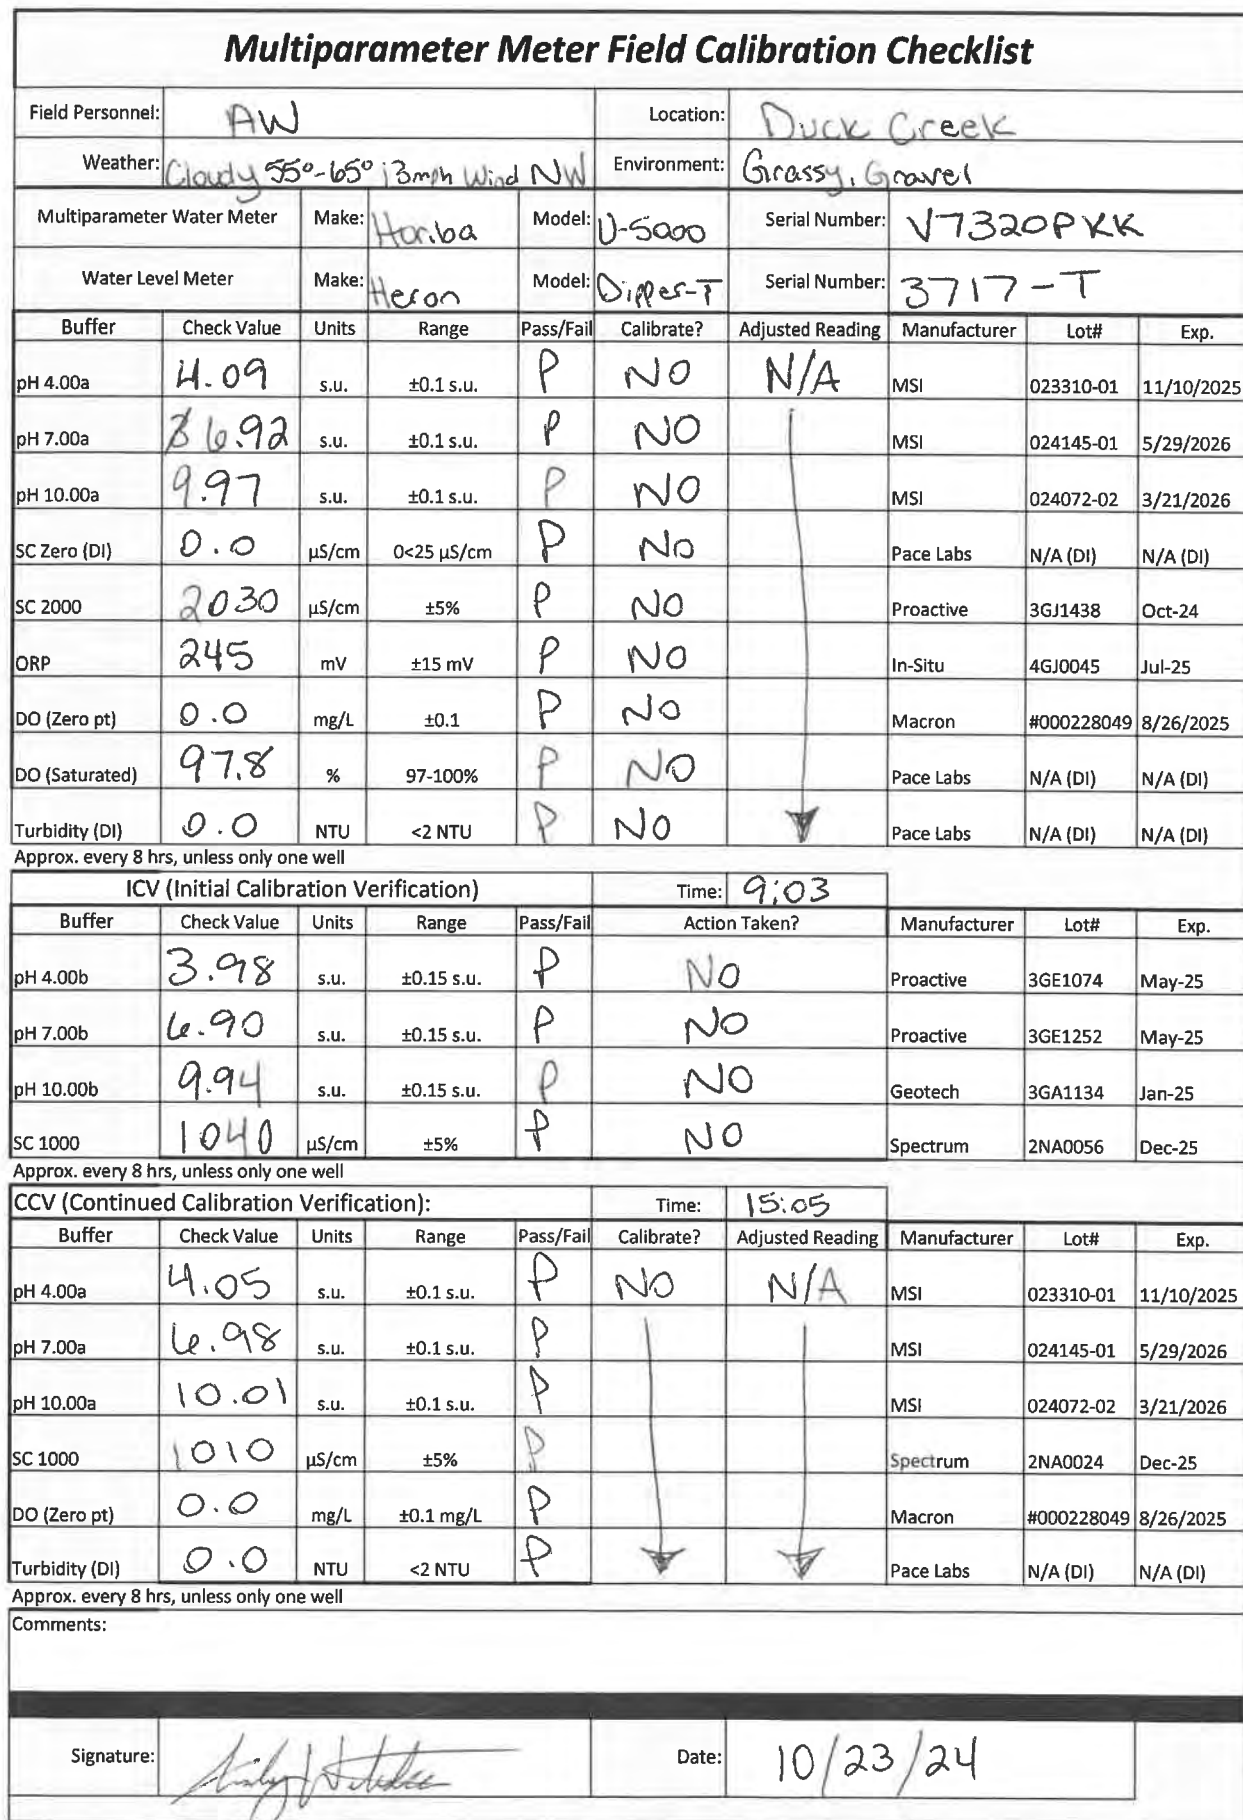 Multiparameter Meter Field Calibration Checklist
Field Personnel: AW Location: Duck Creek
Weather: Cloudy 55°-65° 13mph Wind NW Environment: Grassy, Gravel
Multiparameter Water Meter Make: Horiba Model: U-5000 Serial Number: V7320PKK
Water Level Meter Make: Heron Model: Dipper-T Serial Number: 3717-T
Buffer Check Value Units Range Pass/Fail Calibrate? Adjusted Reading Manufacturer Lot# Exp.
pH 4.00a 4.09 s.u. ±0.1 s.u. P NO N/A MSI 023310-01 11/10/2025
pH 7.00a 6.92 s.u. ±0.1 s.u. P NO MSI 024145-01 5/29/2026
pH 10.00a 9.97 s.u. ±0.1 s.u. P NO MSI 024072-02 3/21/2026
SC Zero (DI) 0.0 µS/cm 0<25 µS/cm P NO Pace Labs N/A (DI) N/A (DI)
SC 2000 2030 µS/cm ±5% P NO Proactive 3GJ1438 Oct-24
ORP 245 mV ±15 mV P NO In-Situ 4GJ0045 Jul-25
DO (Zero pt) 0.0 mg/L ±0.1 P NO Macron #000228049 8/26/2025
DO (Saturated) 97.8 % 97-100% P NO Pace Labs N/A (DI) N/A (DI)
Turbidity (DI) 0.0 NTU <2 NTU P NO Pace Labs N/A (DI) N/A (DI)
Approx. every 8 hrs, unless only one well
ICV (Initial Calibration Verification) Time: 9:03
Buffer Check Value Units Range Pass/Fail Action Taken? Manufacturer Lot# Exp.
pH 4.00b 3.98 s.u. ±0.15 s.u. P NO Proactive 3GE1074 May-25
pH 7.00b 6.90 s.u. ±0.15 s.u. P NO Proactive 3GE1252 May-25
pH 10.00b 9.94 s.u. ±0.15 s.u. P NO Geotech 3GA1134 Jan-25
SC 1000 1040 µS/cm ±5% P NO Spectrum 2NA0056 Dec-25
Approx. every 8 hrs, unless only one well
CCV (Continued Calibration Verification): Time: 15:05
Buffer Check Value Units Range Pass/Fail Calibrate? Adjusted Reading Manufacturer Lot# Exp.
pH 4.00a 4.05 s.u. ±0.1 s.u. P NO N/A MSI 023310-01 11/10/2025
pH 7.00a 6.98 s.u. ±0.1 s.u. P MSI 024145-01 5/29/2026
pH 10.00a 10.01 s.u. ±0.1 s.u. P MSI 024072-02 3/21/2026
SC 1000 1010 µS/cm ±5% P Spectrum 2NA0024 Dec-25
DO (Zero pt) 0.0 mg/L ±0.1 mg/L P Macron #000228049 8/26/2025
Turbidity (DI) 0.0 NTU <2 NTU P Pace Labs N/A (DI) N/A (DI)
Approx. every 8 hrs, unless only one well
Comments:
Signature: Date: 10/23/24